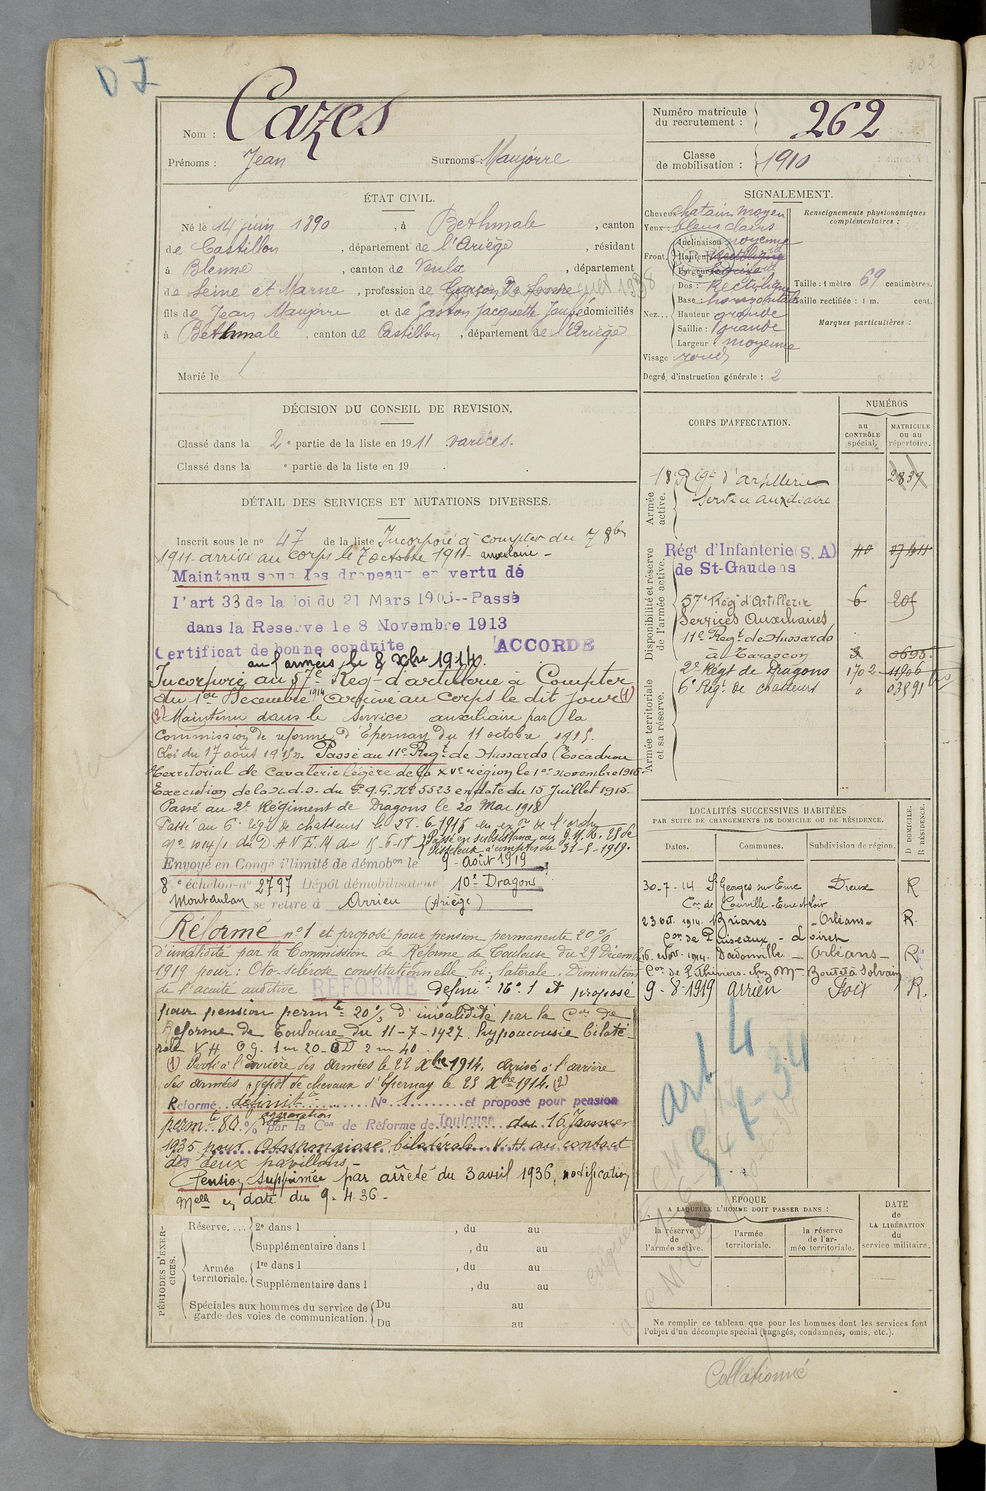 DJ
202
Nom : Cazes
Prénoms : Jean Surnoms : Maujorre
Numéro matricule du recrutement : 262
Classe de mobilisation : 1910
ÉTAT CIVIL.
Né le 14 juin 1890, à Bethmale, canton
de Castillon, département de l'Ariège, résidant
à Blenne, canton de Voulx, département
de Seine et Marne, profession de
fils de Jean Maujorre et de Gaston Jacquette domiciliés
à Bethmale, canton de Castillon, département de l'Ariège
Marié le
SIGNALEMENT.
Cheveux chatain moyen
Yeux : bleus clairs
Front : Inclinaison moyenne
Hauteur
Largeur
Nez... Dos : Rectiligne
Base : horizontale
Hauteur grande
Saillie : grande
Largeur : moyenne
Visage rond
Renseignements physionomiques complémentaires :
Taille : 1 mètre 69 centimètres.
Taille rectifiée : 1 m. cent.
Marques particulières :
Degré d'instruction générale : 2
DÉCISION DU CONSEIL DE REVISION.
Classé dans la 2e partie de la liste en 1911 varices.
Classé dans la e partie de la liste en 19 .
DÉTAIL DES SERVICES ET MUTATIONS DIVERSES.
Inscrit sous le no 47 de la liste Incorporé à compter du 7 8bre
1911 arrivé au corps le 7 octobre 1911
Maintenu sous les drapeaux en vertu de
l'art 33 de la loi du 21 Mars 1905--Passé
dans la Reserve le 8 Novembre 1913
Certificat de bonne conduite ACCORDÉ
aux armées, le 8 Xbre 1914.
Incorporé au 57e Régt d'artillerie à Compter
du 1er Décembre 1914 arrivé au Corps le dit jour (1)
(2) Maintenu dans le service auxiliaire par la
Commission de réforme d'Epernay du 11 octobre 1915.
Loi du 17 août 1915. Passé au 11e Régt de Hussards (Escadron
territorial de Cavalerie légère de la XVe région le 1er novembre 1916
Execution de la du G.Q.G. No 5523 en date du 15 Juillet 1916.
Passé au 2e Régiment de Dragons le 20 Mai 1918
Passé au 6e Régt de chasseurs le 28-6-1918 en exon de l'ordre
Envoyé en Congé illimité de démobon le 9-Août 1919
8e échelon no 2797 Dépôt démobilisateur 10e Dragons
Montauban se retire à Arrien (Ariège)
Réformé no 1 et proposé pour pension permanente 20%
d'invalidité par la Commission de Réforme de Toulouse du 29 Décembre
1919 pour : Oto-sclérose constitutionnelle bi-latérale. Diminution
de l'acuité auditive REFORMÉ définit no 1 et proposé
pour pension permte 20% d'invalidité par la Con de
Réforme de Toulouse du 11-7-1927. hypoacousie bilaté-
rale V.H. OG. 1m 20 - OD 2m 40
(1) Passé à l'arrière des armées le 22 Xbre 1914. arrivé à l'arrière
des armées dépôt de chevaux d'Epernay le 23 Xbre 1914. (2)
Réformé définitt No 1 et proposé pour pension
permte 80 % par la Con de Réforme de Toulouse du 16 Janvier
1935 pour Otospongiose bilatérale. V.H. au contact
des deux pavillons.
Pension supprimée par arrêté du 3 avril 1936, notification
Melle en date du 9.4.36.
CORPS D'AFFECTATION.
NUMÉROS
au CONTRÔLE spécial.
MATRICULE ou au répertoire.
Armée active.
18e Régt d'Artillerie 2837
Service Auxiliaire
Disponibilité et réserve de l'armée active.
Régt d'Infanterie (S.A)
de St-Gaudens
57e Régt d'Artillerie 6 205
Services Auxiliaires
11e Régt de Hussards
à Tarascon
Armée territoriale et sa réserve.
2e Régt de Dragons 1702
6e Régt de chasseurs " 03891
LOCALITÉS SUCCESSIVES HABITÉES
PAR SUITE DE CHANGEMENTS DE DOMICILE OU DE RÉSIDENCE.
Dates. Communes. Subdivision de région. D DOMICILE. R RÉSIDENCE.
30-7-14 St Georges sur Eure Dreux R
Con de Courville - Eure et Loir
23 oct. 1914 Briares Orléans R.
Con de Puiseaux - Loiret
16 Nov. 1914. Dadonville Orléans R.
Con de Pithiviers
9-8-1919 Arrien Foix R.
art 4
ÉPOQUE
A LAQUELLE L'HOMME DOIT PASSER DANS :
la réserve de l'armée active.
l'armée territoriale.
la réserve de l'armée territoriale.
DATE de LA LIBÉRATION du service militaire.
PÉRIODES D'EXERCICES.
Réserve, ... 2e dans l , du au
Supplémentaire dans l , du au
Armée territoriale. 1re dans l , du au
Supplémentaire dans l , du au
Spéciales aux hommes du service de garde des voies de communication. Du au
Du au
Ne remplir ce tableau que pour les hommes dont les services font
l'objet d'un décompte spécial (engagés, condamnés, omis, etc.).
Collationné